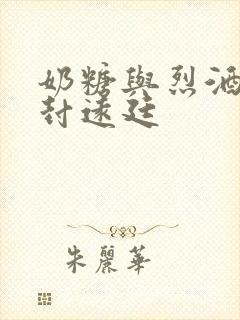 奶糖與烈酒
封遠廷
朱麗華